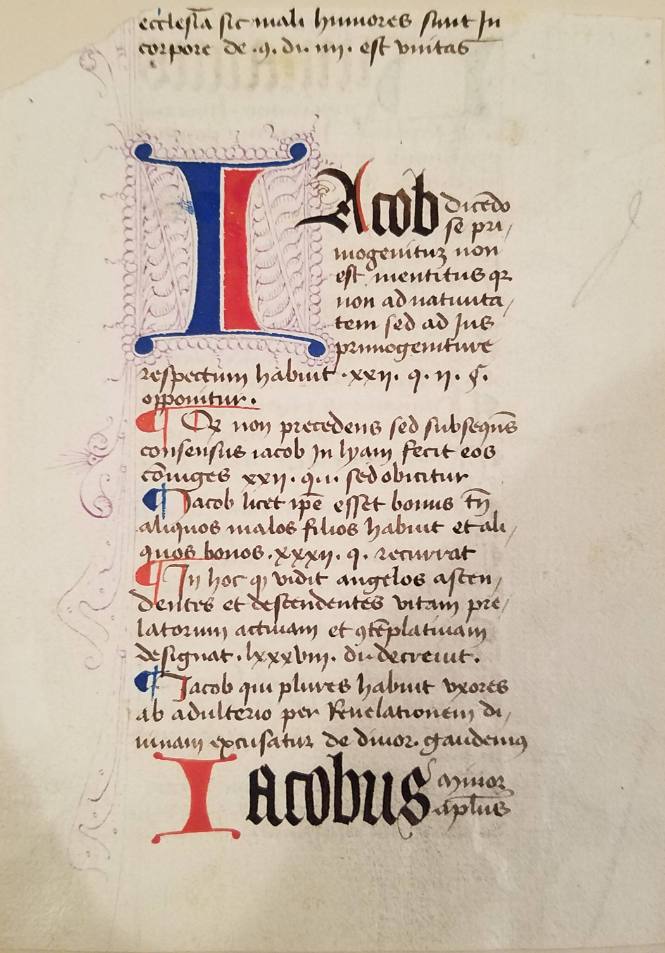 ecclesiā sic mali humores sunt In
corpore de .9. di. iiij. est unitas
IAcob dicēdo
se pri,
mogenitus non
est mentitus qꝛ
non ad nativita,
tem sed ad Jus
primogeniture
respectum habuit .xxij. q. ij. §.
opponitur.
¶ Qꝛ non precedens sed subsequēs
consensus iacob In lyam fecit eos
cōiuges xxij. q. i. sed obicitur
¶ Jacob licet ip̄e esset bonus tn̄
aliquos malos filios habuit et ali,
quos bonos .xxxij. q. recurrat
¶ In hoc qꝫ vidit angelos ascen,
dentes et descendentes vitam pre,
latorum activam et ꝯtēplativam
designat .lxxxviij. di. decrevit.
¶ Jacob qui plures habuit vxores
ab adulterio per Revelationem di,
uinam excusatur de divor. gaudemꝰ
Iacobus minor
ap̄lus